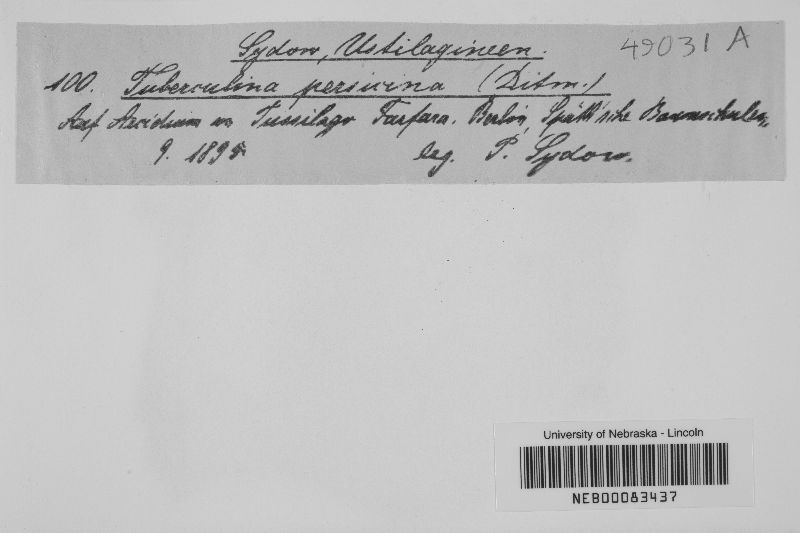 Sydow, Ustilagineen.
49031 A
100. Tuberculina persicina (Ditm.)
Auf Aecidium von Tussilago Farfara. Berlin, Späth'sche Baumschulen,
9. 1895 leg. P. Sydow.
University of Nebraska - Lincoln
NEB00083437